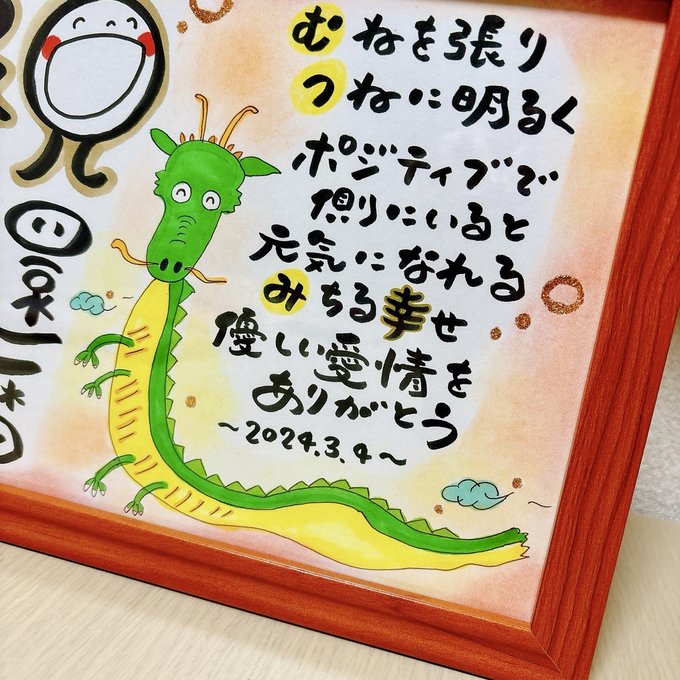 むねを張り
つねに明るく
ポジティブで
側にいると
元気になれる
みちる幸せ
優しい愛情を
ありがとう
~2024.3.4~